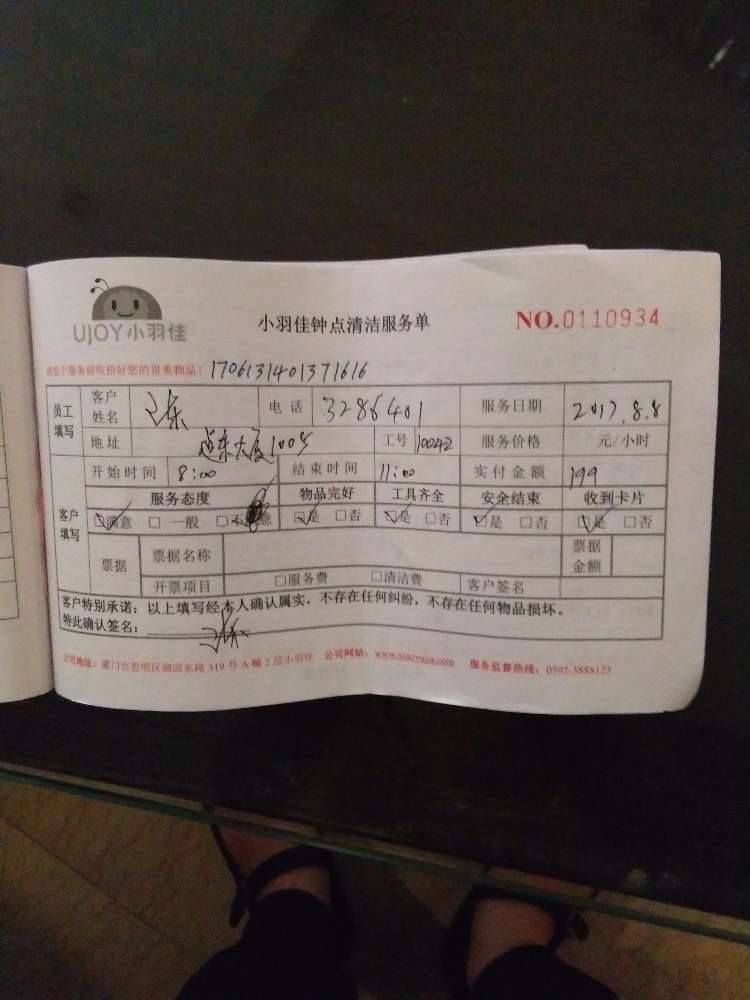 UJOY小羽佳
小羽佳钟点清洁服务单
NO.0110934
请您于服务前收拾好您的贵重物品：1706131401371616
员工填写 客户姓名 电话 3286401 服务日期 2017.8.8
地址 大厦1005 工号 10042 服务价格 元/小时
开始时间 8:00 结束时间 11:00 实付金额 199
客户填写 服务态度 物品完好 工具齐全 安全结束 收到卡片
☑满意 □一般 □不 意 ☑是 □否 ☑是 □否 ☑是 □否 ☑是 □否
票据 票据名称 票据金额
开票项目 □服务费 □清洁费 客户签名
客户特别承诺：以上填写经本人确认属实，不存在任何纠纷，不存在任何物品损坏。
特此确认签名：
公司地址：厦门市思明区湖滨东路 319 号 A 幢 2 层小羽佳 公司网站：www.xiaoyujia.com 服务监督热线：0592-3888123